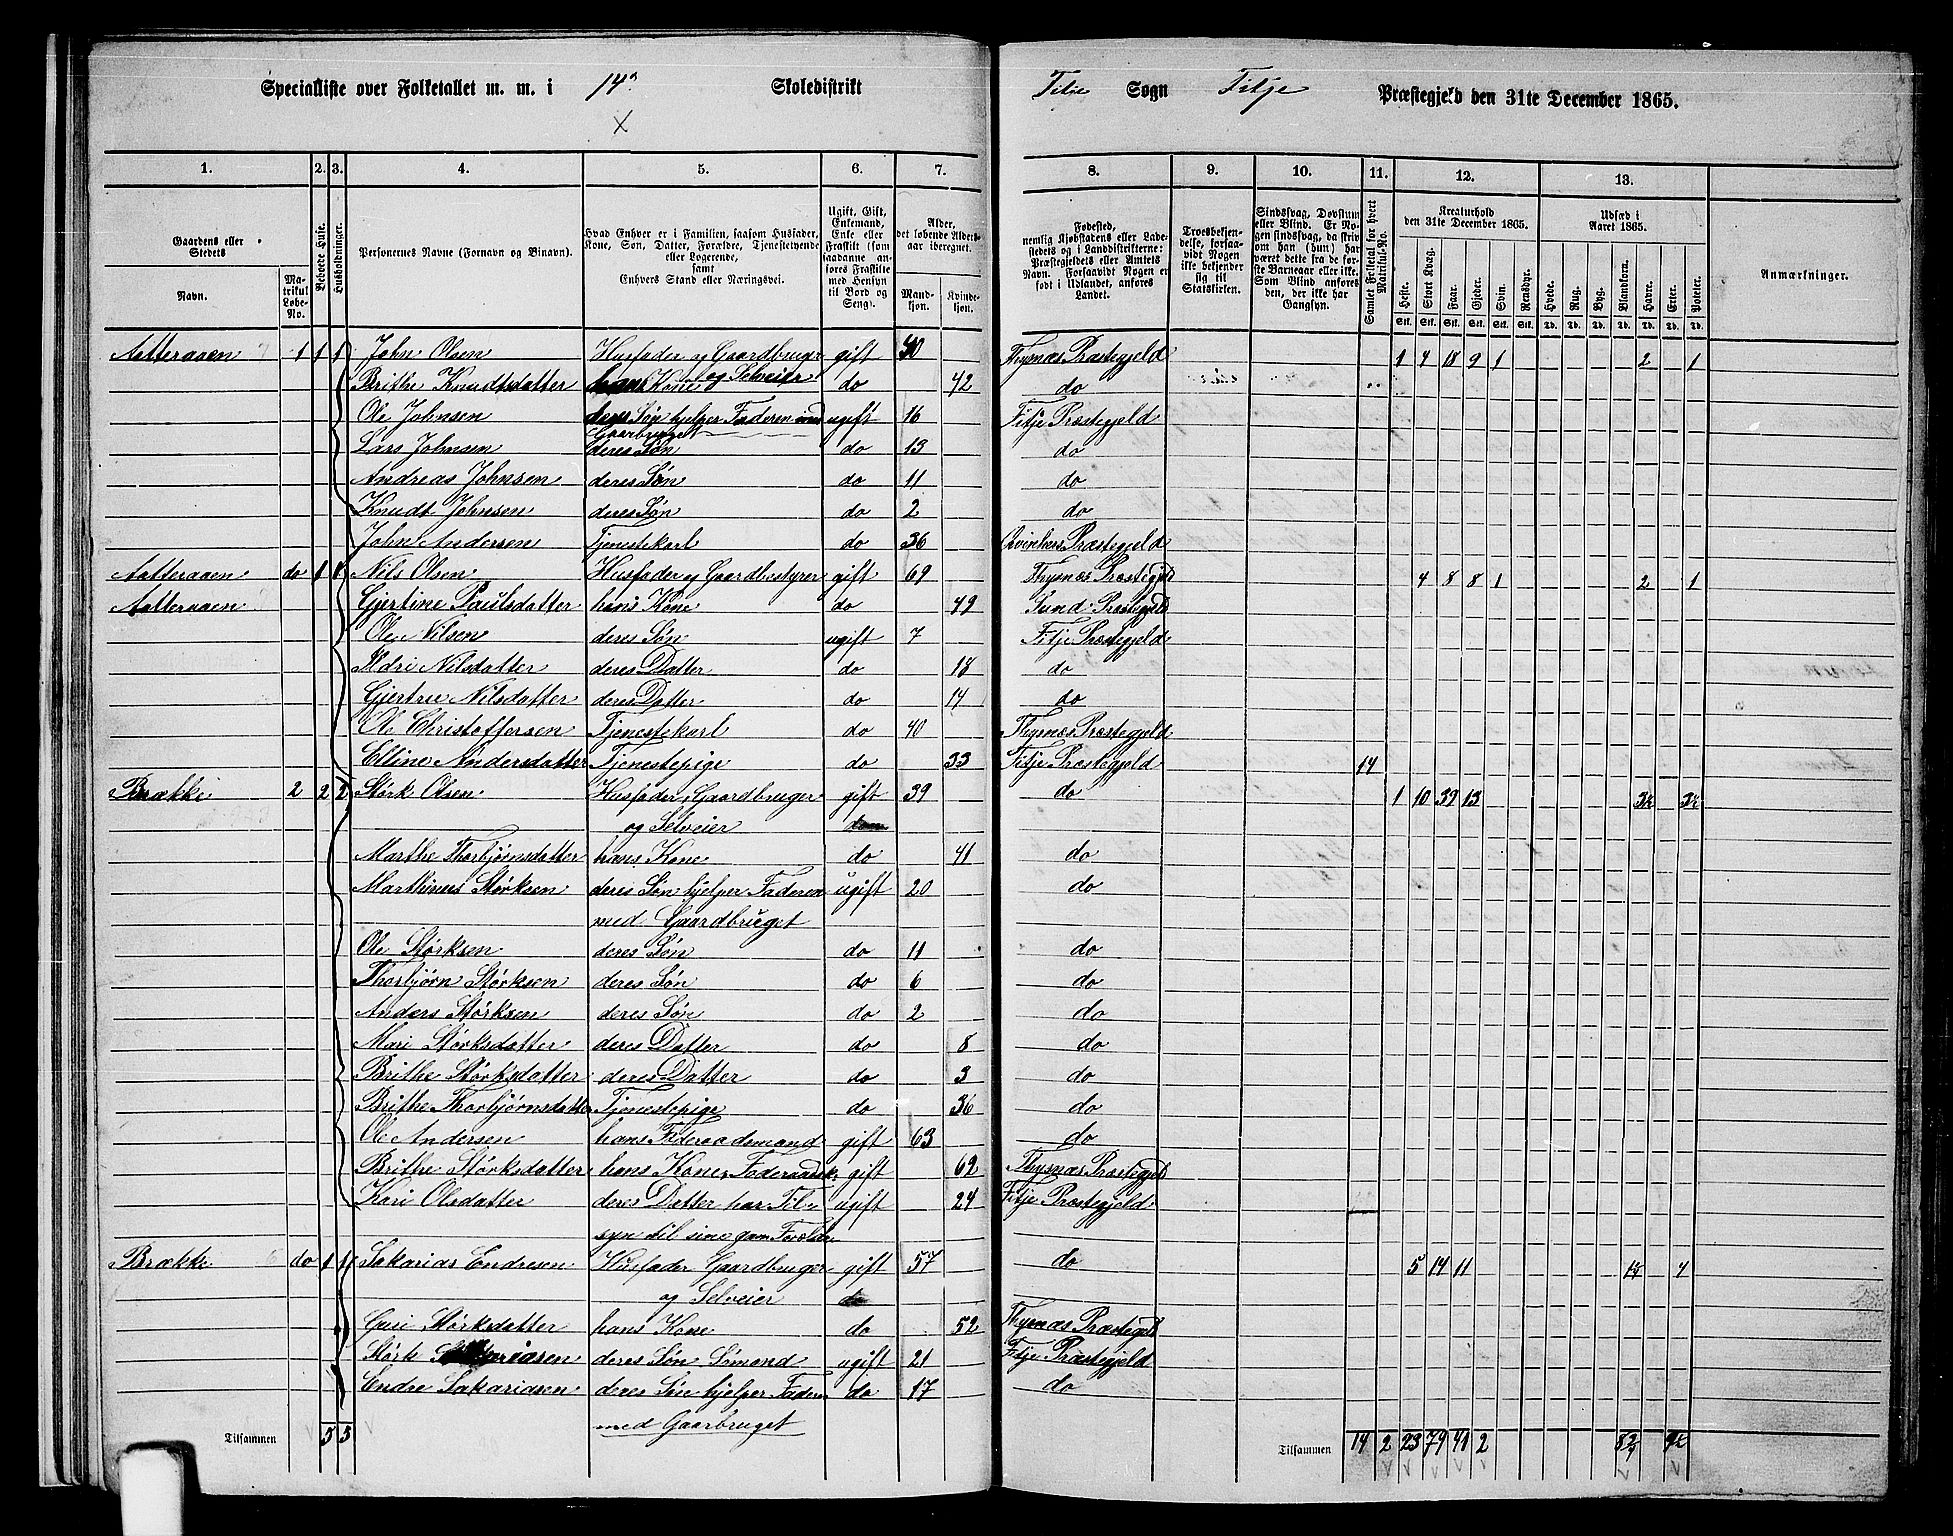 Specialliste over Folketallet m. m. i 14de Skoledistrikt Fitje Sogn Fitje Præstegjeld den 31te December 1865.
X
1. 2. 3. 4. 5. 6. 7. 8. 9. 10. 11. 12. 13.
Gaardens eller Stedets
Navn.
Matrikul Løbe-No.
Beboede Huse.
Husholdninger.
Personernes Navne (Fornavn og Binavn).
Hvad Enhver er i Familien, saasom Husfader, Kone, Søn, Datter, Forældre, Tjenestetyende eller Logerende, samt Enhvers Stand eller Næringsvei.
Ugift, Gift, Enkemand, Enke eller Fraskilt (som saadanne anføres Fraskilte med Hensyn til Bord og Seng).
Alder, det løbende Aldersaar iberegnet.
Mandkjøn. Kvindekjøn.
Fødested, nemlig Kjøbstadens eller Ladestedets og i Landdistrikterne: Præstegjeldets eller Amtets Navn. Forsaavidt Nogen er født i Udlandet, anføres Landet.
Troesbekjendelse, forsaavidt Nogen ikke bekjender sig til Statskirken.
Sindssvag, Døvstum eller Blind. Er Nogen sindssvag, da skrives om han (hun) har været dette fra de første Barneaar eller ikke. Som Blind anføres den, der ikke har Gangsyn.
Samlet Folketal for hvert Matrikul-No.
Kreaturhold den 31te December 1865.
Heste. Stort Kvæg. Faar. Gjeder. Svin. Rensdyr.
Udsæd i Aaret 1865.
Hvede. Rug. Byg. Blandkorn. Havre. Erter. Poteter.
Anmærkninger.
Aatteraaen 1 1 1 John Olsen Husfader og Gaardbruger gift 40 Thysnæs Præstegjeld 1 4 18 9 1 2 1
og Selveier
Brithe Knudtsdatter hans Kone do 42 do
Ole Johnsen deres Søn hjelper Faderen med ugift 16 Fitje Præstegjeld
Gaarbruget
Lars Johnsen deres Søn do 13 do
Andreas Johnsen deres Søn do 11 do
Knudt Johnsen deres Søn do 2 do
John Andersen Tjenestekarl do 36 Qvinhers Præstegjeld
Aatteraaen do 1 1 Nils Olsen Husfader og Gaardbestyrer gift 69 Thysnæs Præstegjeld 4 8 8 1 2 1
Aatteraaen Gjertine Paulsdatter hans Kone do 49 Sund Præstegjeld
Ole Nilsen deres Søn ugift 7 Fitje Præstegjeld
Nilsdatter deres Datter do 18 do
Gjertrue Nilsdatter deres Datter do 14 do
Ole Christoffersen Tjenestekarl do 40 Thysnæs Præstegjeld
Elline Andersdatter Tjenestepige do 33 Fitje Præstegjeld 14
Brække 2 2 2 Størk Olsen Husfader, Gaardbruger gift 39 do 1 10 39 13 3½ 3½
og Selveier
Marthe Thorbjørnsdatter hans Kone do 41 do
Marthinus Størksen deres Søn hjelper Faderen ugift 20 do
med Gaardbruget
Ole Størksen deres Søn do 11 do
Thorbjørn Størksen deres Søn do 6 do
Anders Størksen deres Søn do 2 do
Mari Størksdatter deres Datter do 8 do
Brithe Størksdatter deres Datter do 3 do
Brithe Thorbjørnsdatter Tjenestepige do 36 do
Ole Andersen hans Føderaadsmand gift 63 do
Brithe Størksdatter hans Kone, Føderaadsk. gift 62 Thysnæs Præstegjeld
Kari Olsdatter deres Datter har Til- ugift 24 Fitje Præstegjeld
syn til sine gam Forældre
Brække do 1 1 Sakarias Endresen Husfader Gaardbruger gift 57 do 5 14 11 4
og Selveier
Guri Størksdatter hans Kone do 52 Thysnæs Præstegjeld
Størk Sakariasen deres Søn Sømand ugift 21 Fitje Præstegjeld
Endre Sakariasen deres Søn hjelper Faderen do 17 do
med Gaarbruget
Tilsammen 5 5 Tilsammen 14 2 23 79 41 2 9½